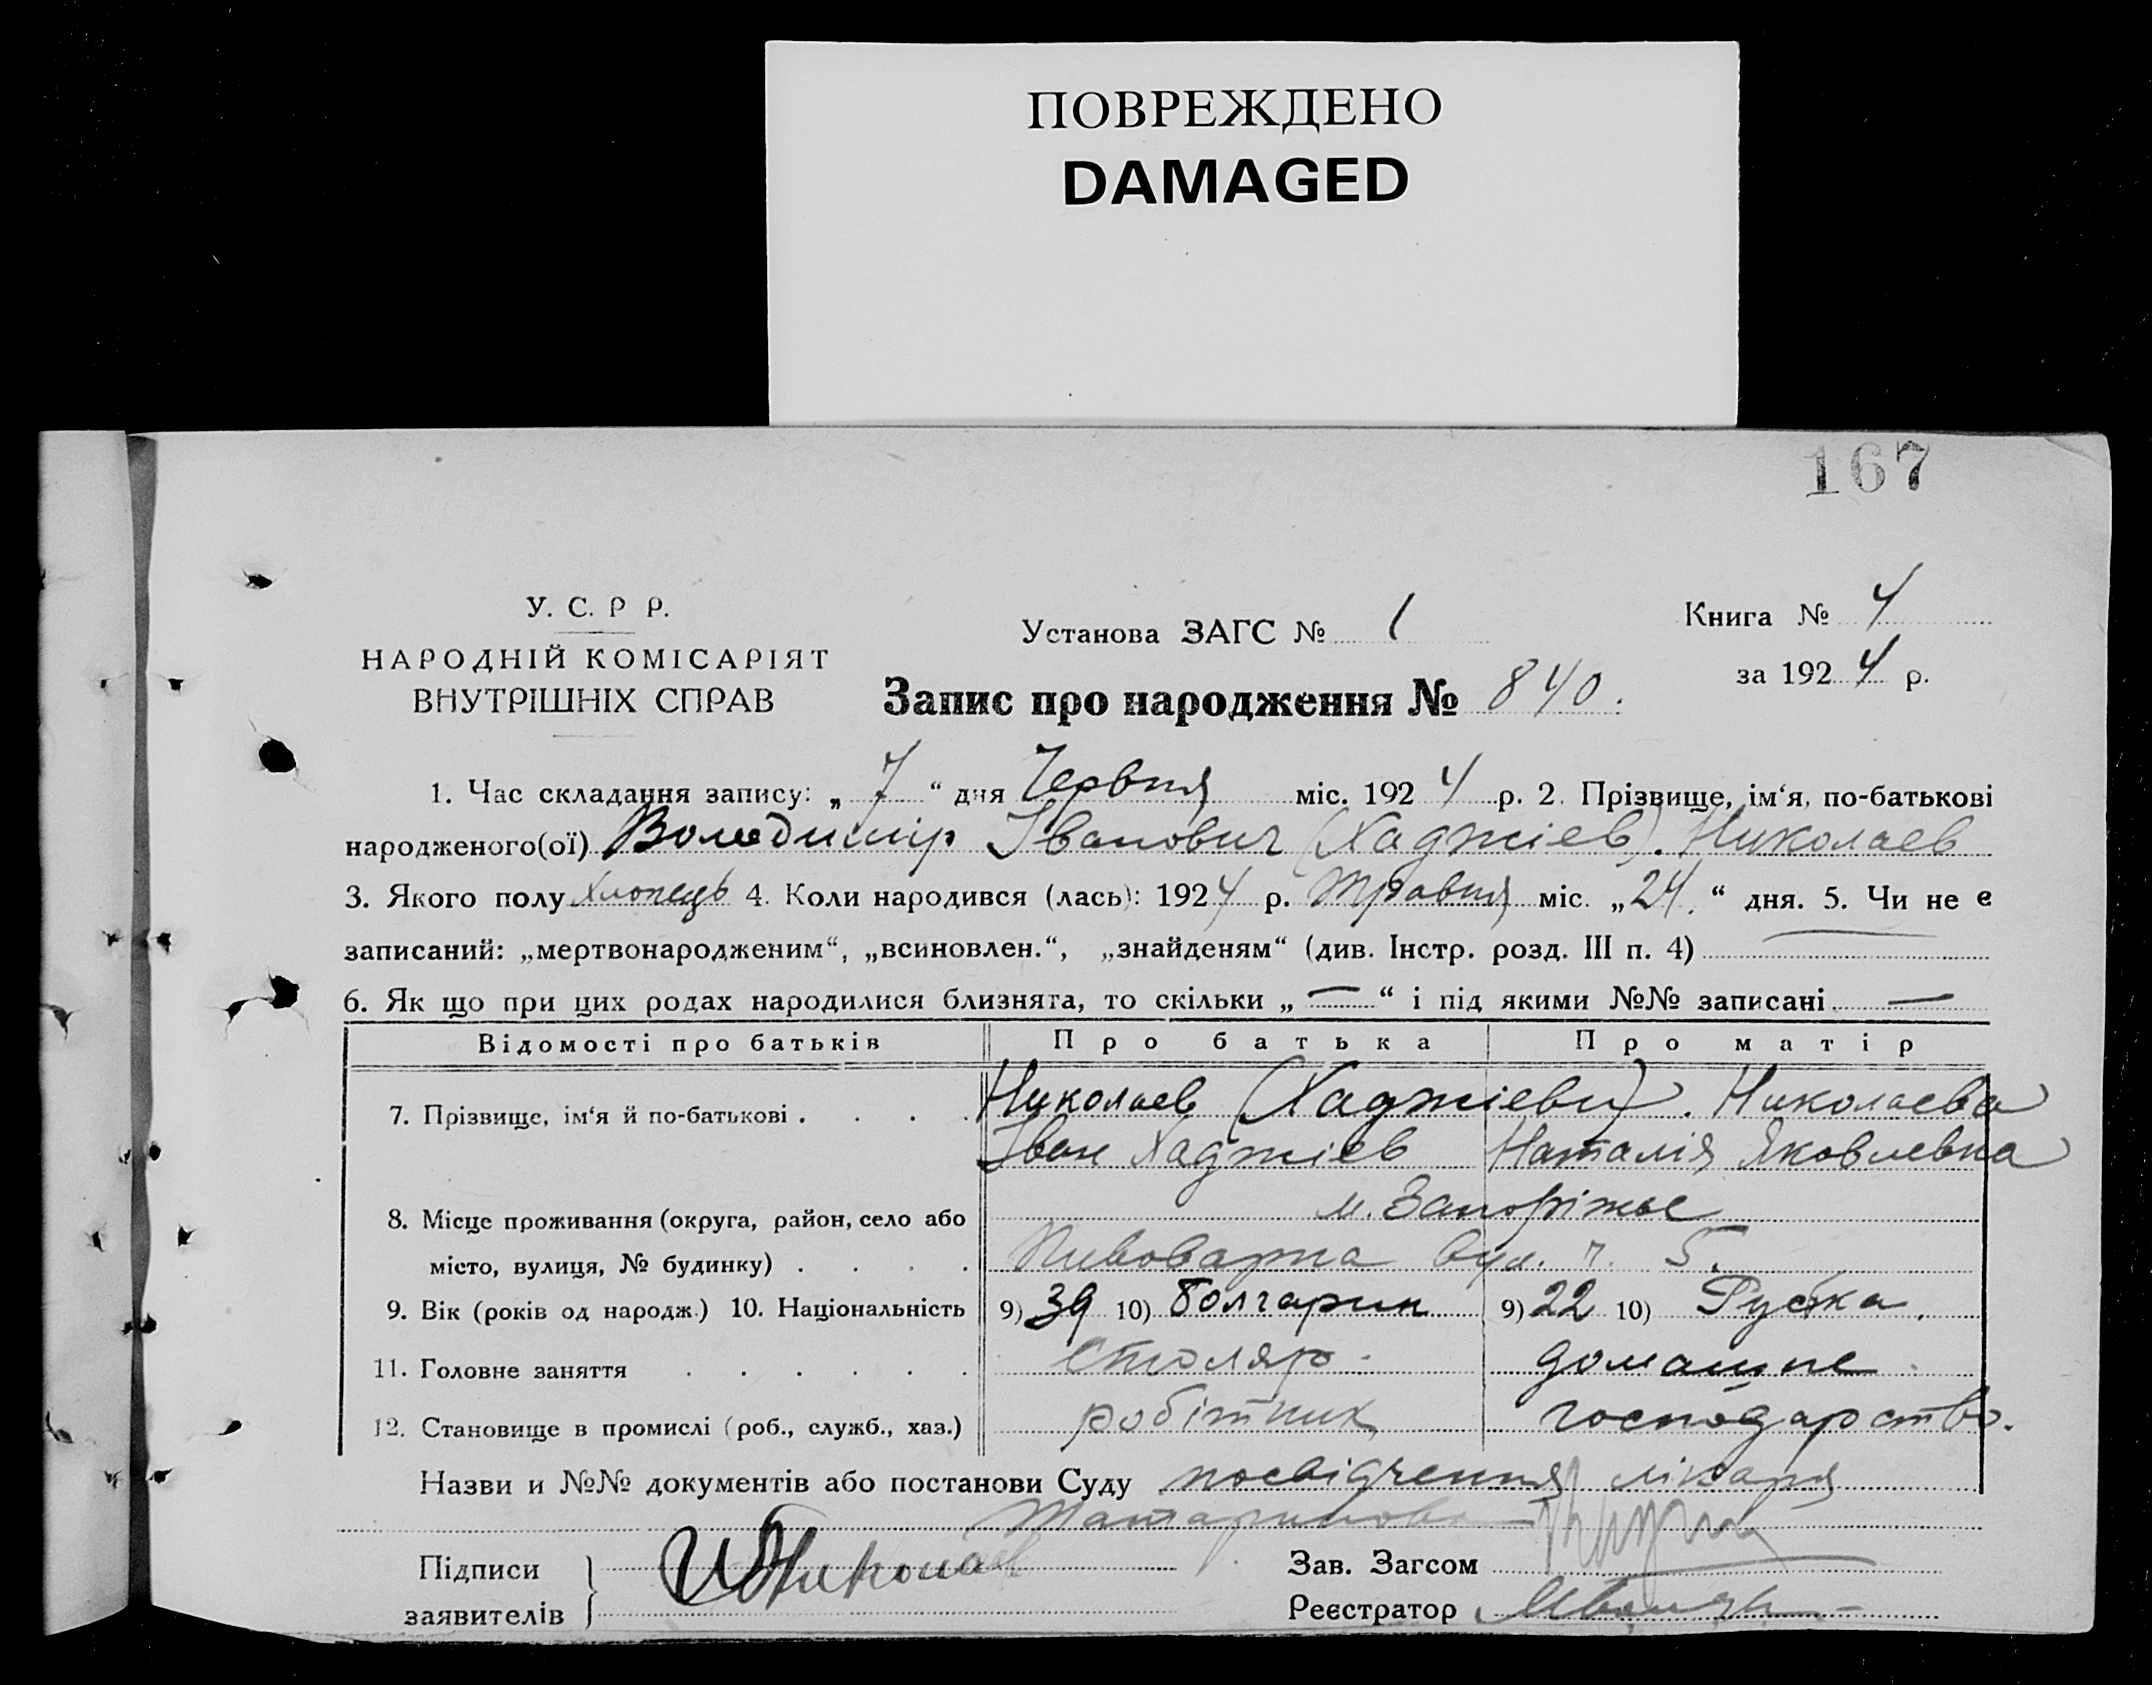 ПОВРЕЖДЕНО
DAMAGED
167
У. С. Р Р.
НАРОДНІЙ КОМІСАРІЯТ
ВНУТРІШНІХ СПРАВ
Установа ЗАГС № 1
Книга № 4
за 1924 р.
Запис про народження № 840.
1. Час складання запису: „7“ дня Червня міс. 1924 р. 2. Прізвище, ім‘я, по-батькові
народженого(ої) Володимір Іванович (Хаджіев). Николаев
3. Якого полу хлопець 4. Коли народився (лась): 1924 р. Травня міс. „24.“ дня. 5. Чи не є
записаний: „мертвонародженим“, „всиновлен.“, „знайденям“ (див. Інстр. розд. III п. 4)
6. Як що при цих родах народилися близнята, то скільки „—“ і під якими №№ записані —
Відомості про батьків Про батька Про матір
7. Прізвище, ім‘я й по-батькові . . . . Николаев (Хаджіеви). Николаева
Іван Хаджіев Наталія Яковлевна
8. Місце проживання (округа, район, село або м. Запоріжье
місто, вулиця, № будинку) . . . . Пивоварна вул. ч. 5.
9. Вік (років од народж.) 10. Національність 9) 39 10) болгарин 9) 22 10) Руска.
11. Головне заняття . . . . . . Столяр. домашнє
12. Становище в промислі (роб., служб., хаз.) робітник господарство.
Назви и №№ документів або постанови Суду посвідчення лікаря
Татаринова
Підписи
заявителів
Николаев
Зав. Загсом
Реєстратор